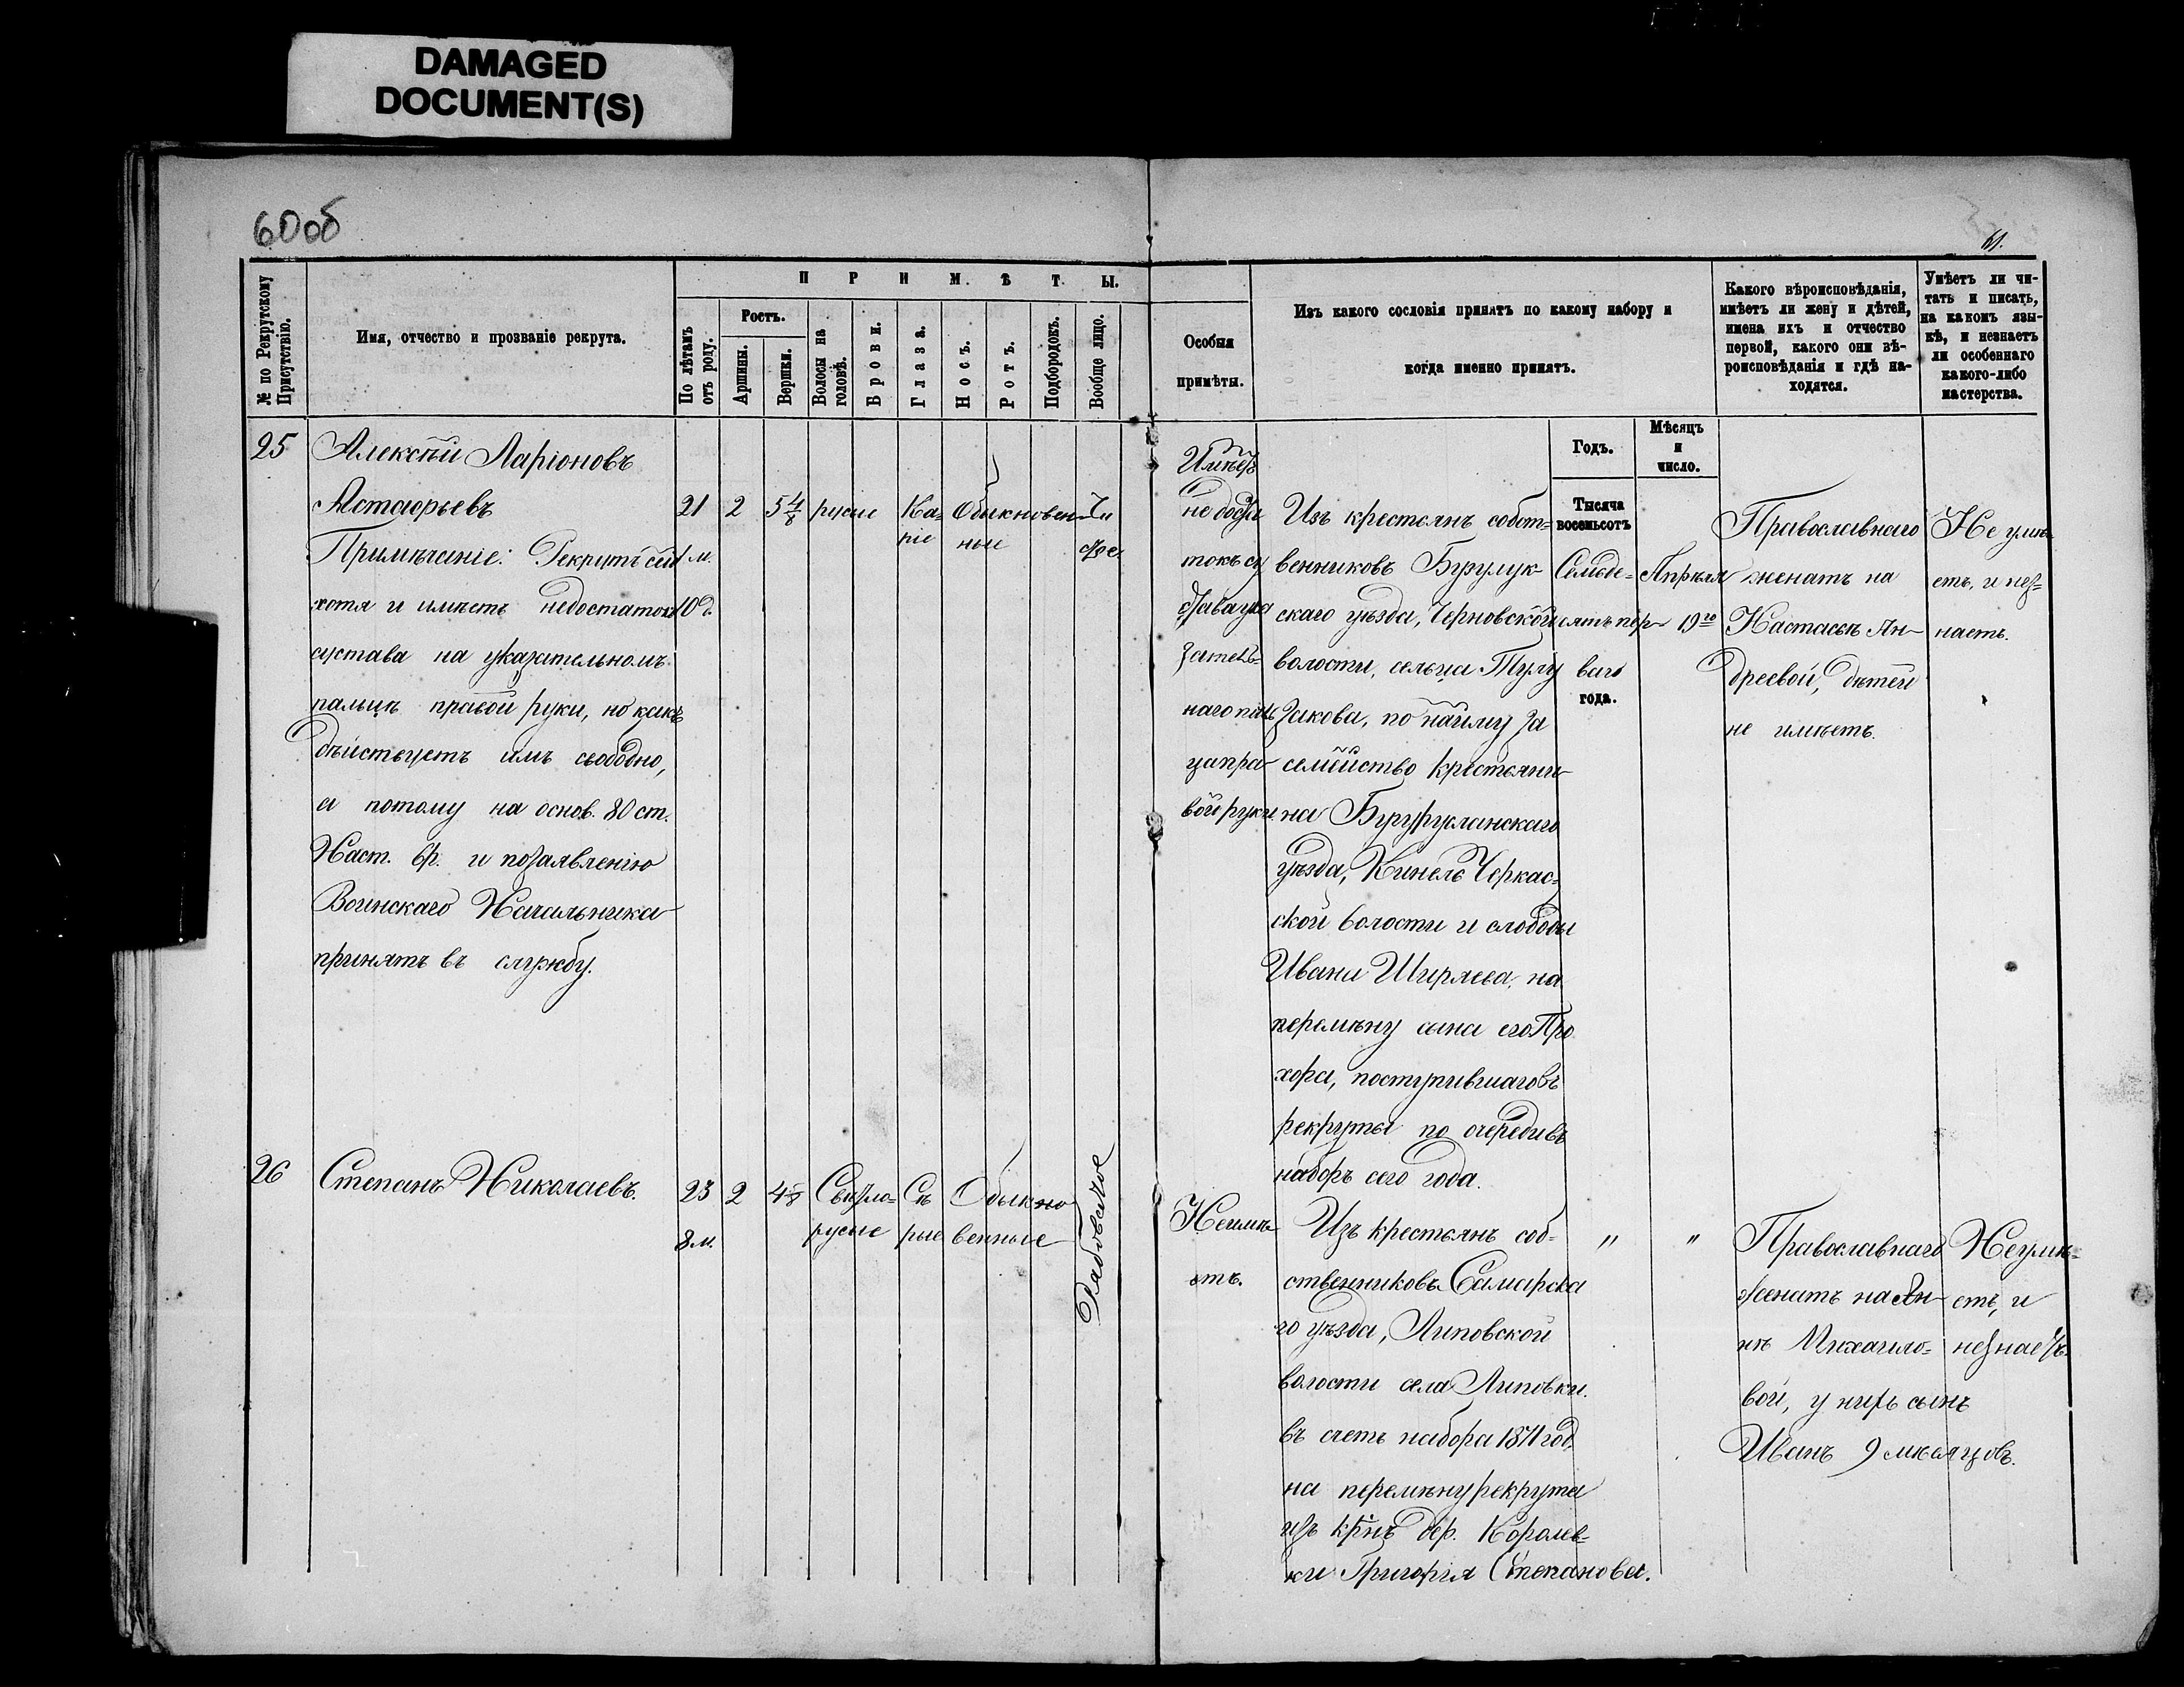 DAMAGED
DOCUMENT(S)
60об
61.
№ по Рекрутскому Присутствію.
Имя, отчество и прозваніе рекрута.
ПРИМѢТЫ.
По лѣтамъ отъ роду.
Ростъ.
Аршины.
Вершки.
Волосы на головѣ.
Брови.
Глаза.
Носъ.
Ротъ.
Подбородокъ.
Вообще лицо.
Особыя
примѣты.
Изъ какого сословія принятъ по какому набору и
когда именно принятъ.
Какого вѣроисповѣданія,
имѣетъ ли жену и дѣтей,
имена ихъ и отчество
первой, какого они вѣ-
роисповѣданія и гдѣ на-
ходятся.
Умѣетъ ли чи-
тать и писать,
на какомъ язы-
кѣ, и незнаетъ
ли особеннаго
какого-либо
мастерства.
Годъ.
Мѣсяцъ
и
число.
Тысяча
восемьсотъ
25
Алексѣй Ларіоновъ
Астафьевъ
Примѣчаніе: Рекрутъ сей
хотя и имѣетъ недостатокъ
сустава на указательномъ
пальцѣ правой руки, но какъ
дѣйствуетъ имъ свободно,
а потому на основ. 80 ст.
Наст. вр. и по заявленію
Воинскаго Начальника
принятъ въ службу.
21
1 м.
10 д.
2
5 4/8
русые
Ка-
ріе
Обыкновен-
ные
Чи
стое
Имѣетъ
недоста
токъ су
става ука
затель-
наго паль
ца пра-
вой руки
Изъ крестьянъ собст-
венниковъ Бузулук-
скаго уѣзда, Черновской
волости, сельца Тулу
закова, по найму за
семейство крестьяни-
на Бугурусланскаго
уѣзда, Кинель Черкас-
ской волости и слободы
Ивана Ширяева, на
перемѣну сына его Про
хора, поступившаго въ
рекруты по очереди въ
наборъ сего года.
Семьде-
сятъ пер-
ваго
года.
Апрѣля
19го
Православнаго
женатъ на
Настасьѣ Ан-
дреевой, дѣтей
не имѣетъ.
Не умѣ-
етъ, и нез-
наетъ.
26
Степанъ Николаевъ.
23
8 м.
2
4
Свѣтло-
русые
Сѣ
рые
Обыкно
венные
Рябоватое
Неимѣ-
етъ.
Изъ крестьянъ соб-
ственниковъ Самарска
го уѣзда, Липовской
волости села Липовки.
въ счетъ набора 1871 год.
на перемѣну рекрута
изъ крнъ дер. Королев-
ки Григорія Степанова.
"
"
Православнаго
женатъ на Ан-
нѣ Михайло-
вой, у нихъ сынъ
Иванъ 9 мѣсяцовъ.
Неумѣ-
етъ, и
незнаетъ.